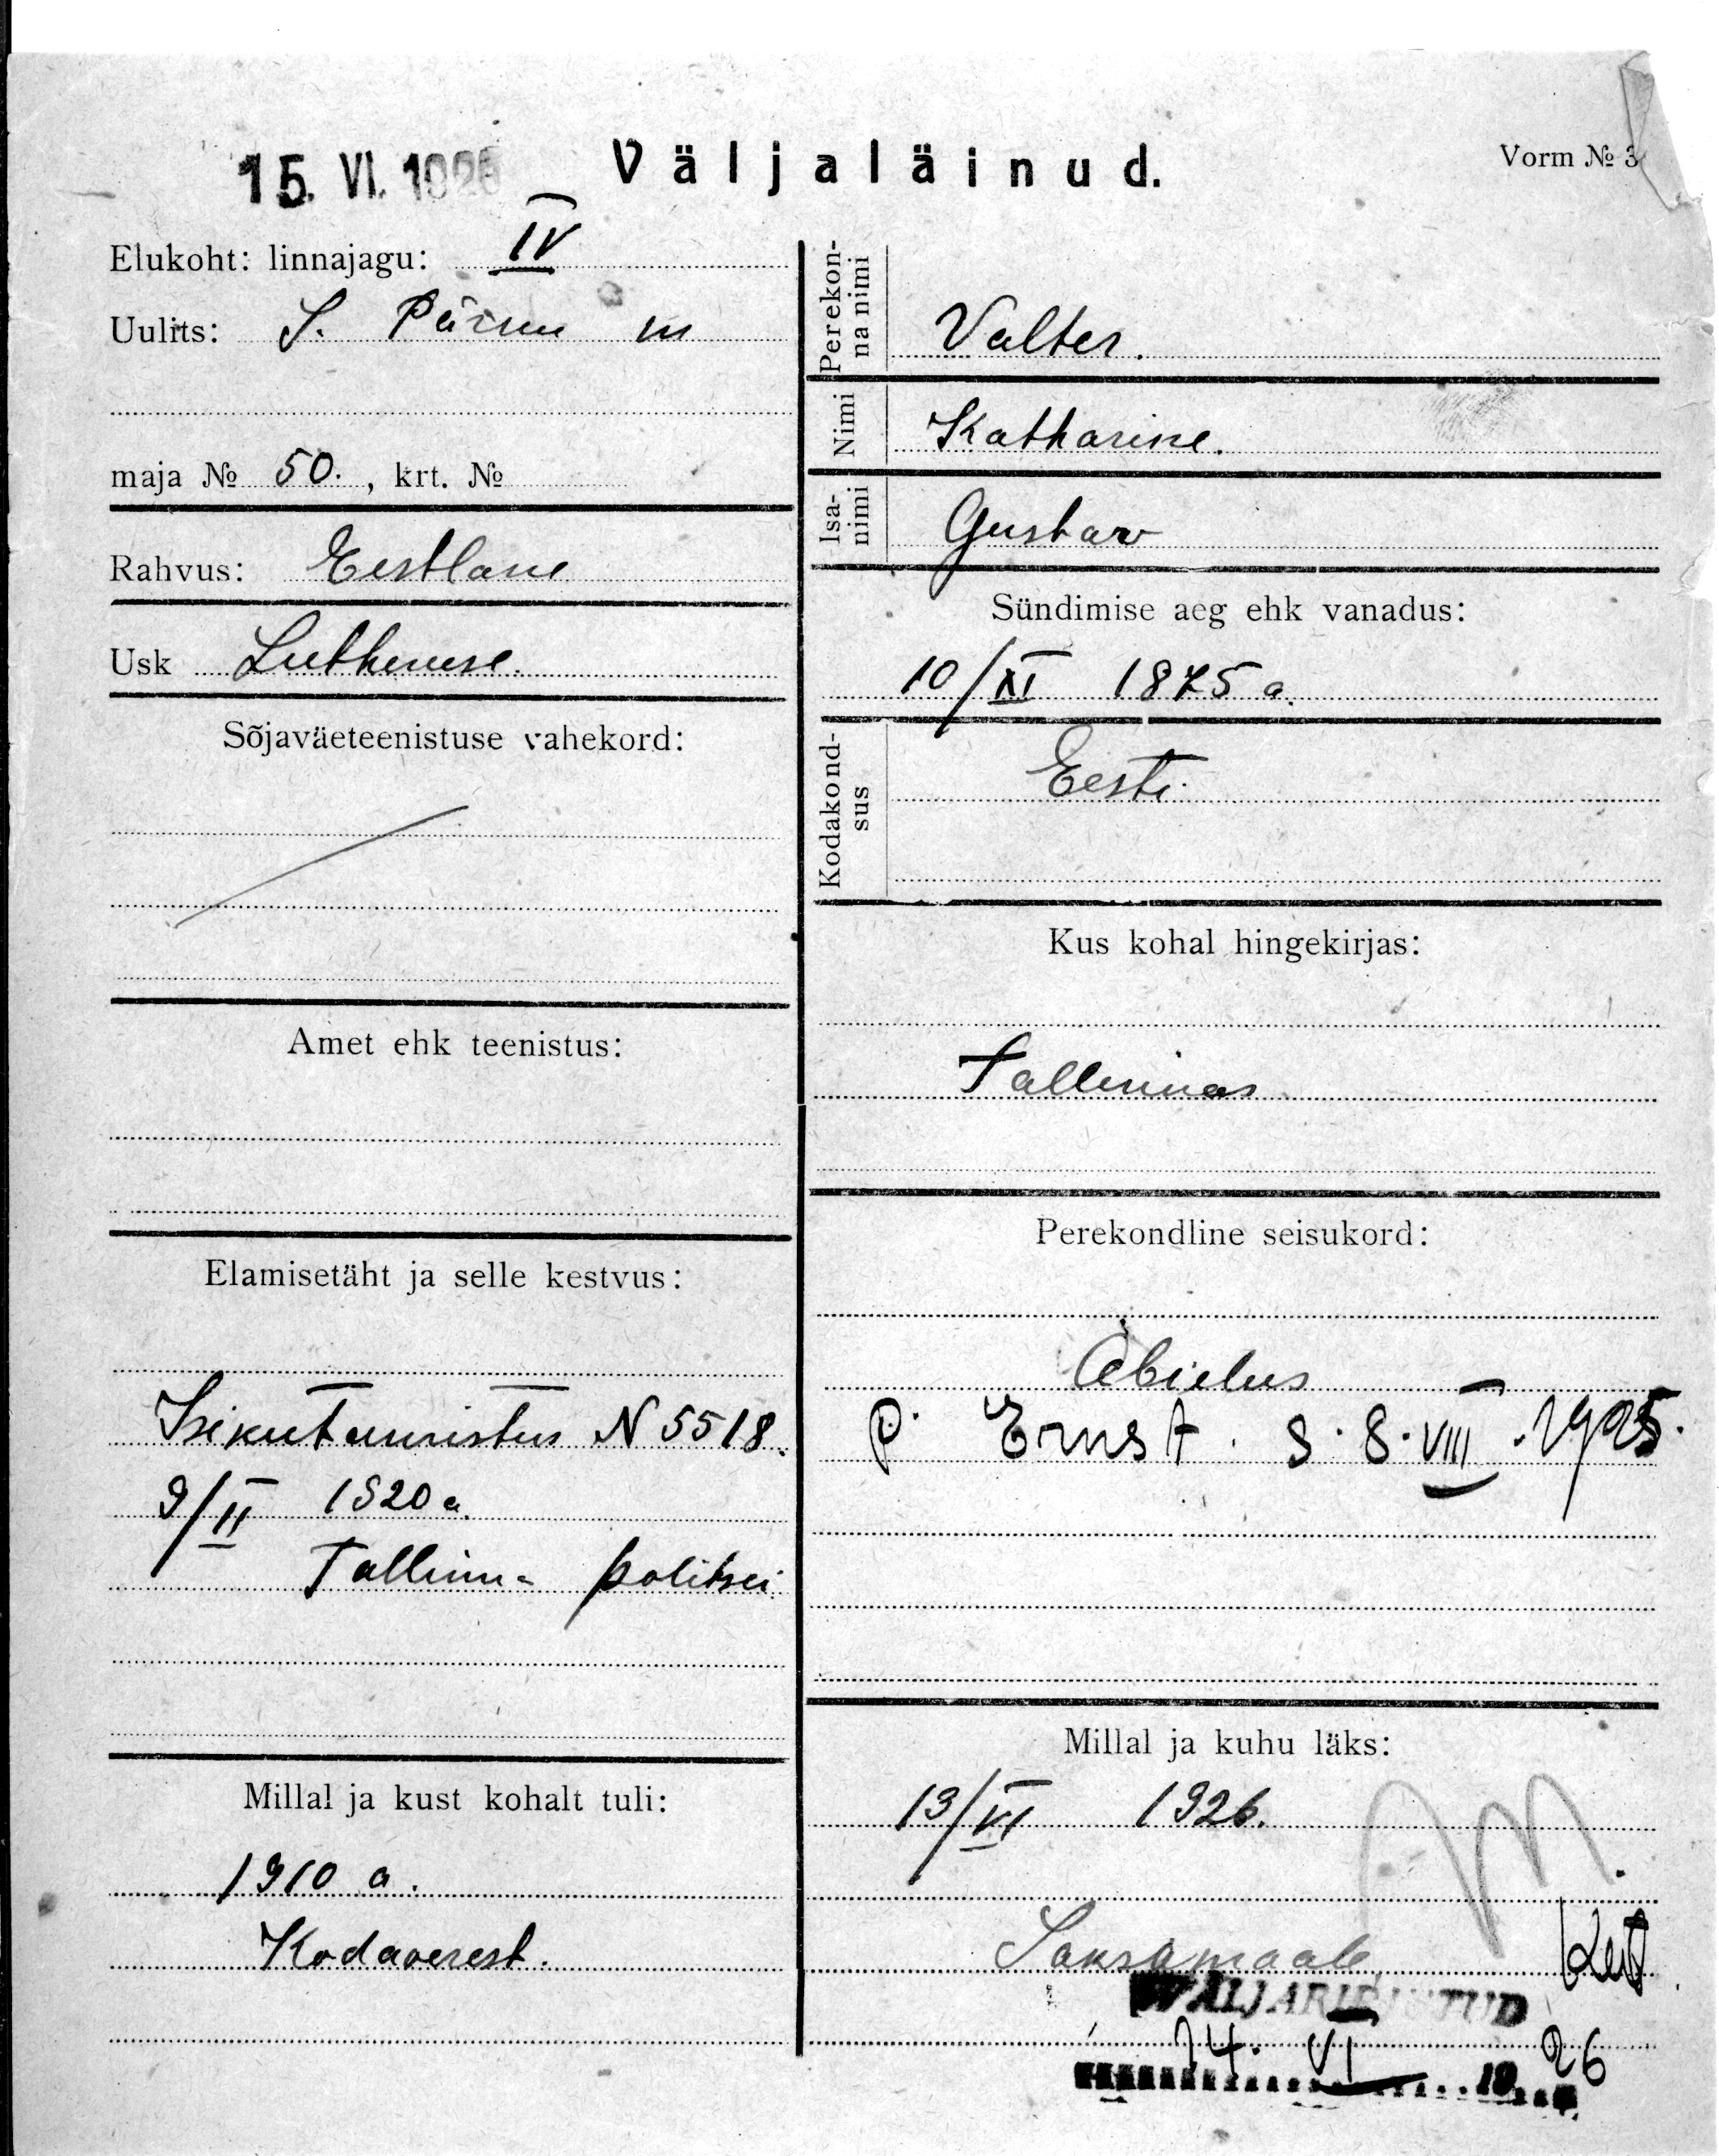 15. VI. 1926
Väljaläinud.
Vorm № 3
Elukoht: linnajagu: IV
Uulits: S. Pärnu m
maja № 50. , krt. №
Rahvus: Eestlane
Usk Lutheruse.
Sõjaväeteenistuse vahekord:
Amet ehk teenistus:
Elamisetäht ja selle kestvus:
Isikutunnistus N 5518.
9/II 1920 a.
Tallinna politsei
Millal ja kust kohalt tuli:
1910 a.
Kodaverest.
Perekon-
na nimi
Valter.
Nimi
Katharine.
Isa-
nimi
Gustav
Sündimise aeg ehk vanadus:
10/XI 1875 a.
Kodakond-
sus
Eesti
Kus kohal hingekirjas:
Tallinnas
Perekondline seisukord:
Abielus
P. Ernst. S. 8. VIII. 1905.
Millal ja kuhu läks:
13/VI 1926.
Saksamaale
14. VI 1926